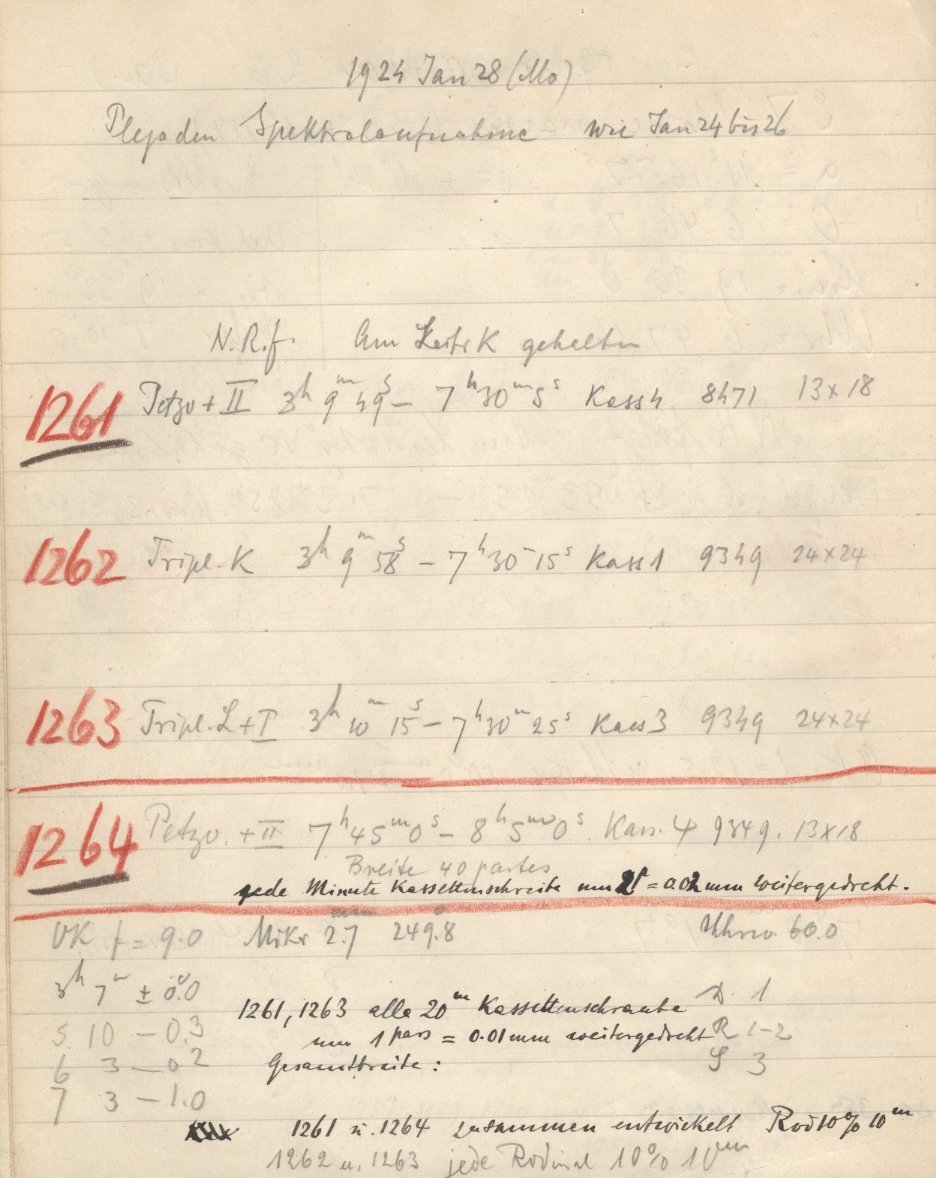 1924 Jan 28 (Mo)
Plejaden Spektralaufnahme wie Jan 24 bis 26
N.R.f. Am Leitr K gehalten
1261 Petzv + II 3h 9m 49s – 7h 30m 5s Kass 4 8471 13×18
1262 Tripl. K 3h 9m 58s – 7h 30m 15s Kass 1 9349 24×24
1263 Tripl. L + I 3h 10m 15s – 7h 30m 25s Kass 3 9349 24×24
1264 Petzv. + II 7h 45m 0s – 8h 5m 0s Kass. 4 9349. 13×18
Breite 40 partes
jede Minute Kassettenschreibe um 2p = 0.02 mm weitergedreht.
f = 9.0 Mikr 2.7 249.8 60.0
3h 7m ± 0.0
5 10 – 0.3
6 3 – 0.2
7 3 – 1.0
1261, 1263 alle 20m Kassettenschraube D. 1
um 1 pars = 0.01 mm weitergedreht R 1–2
Gesamtbreite: S 3
1261 u. 1264 zusammen entwickelt Rod 10% 10m
1262 u. 1263 jede Rodinal 10% 10m